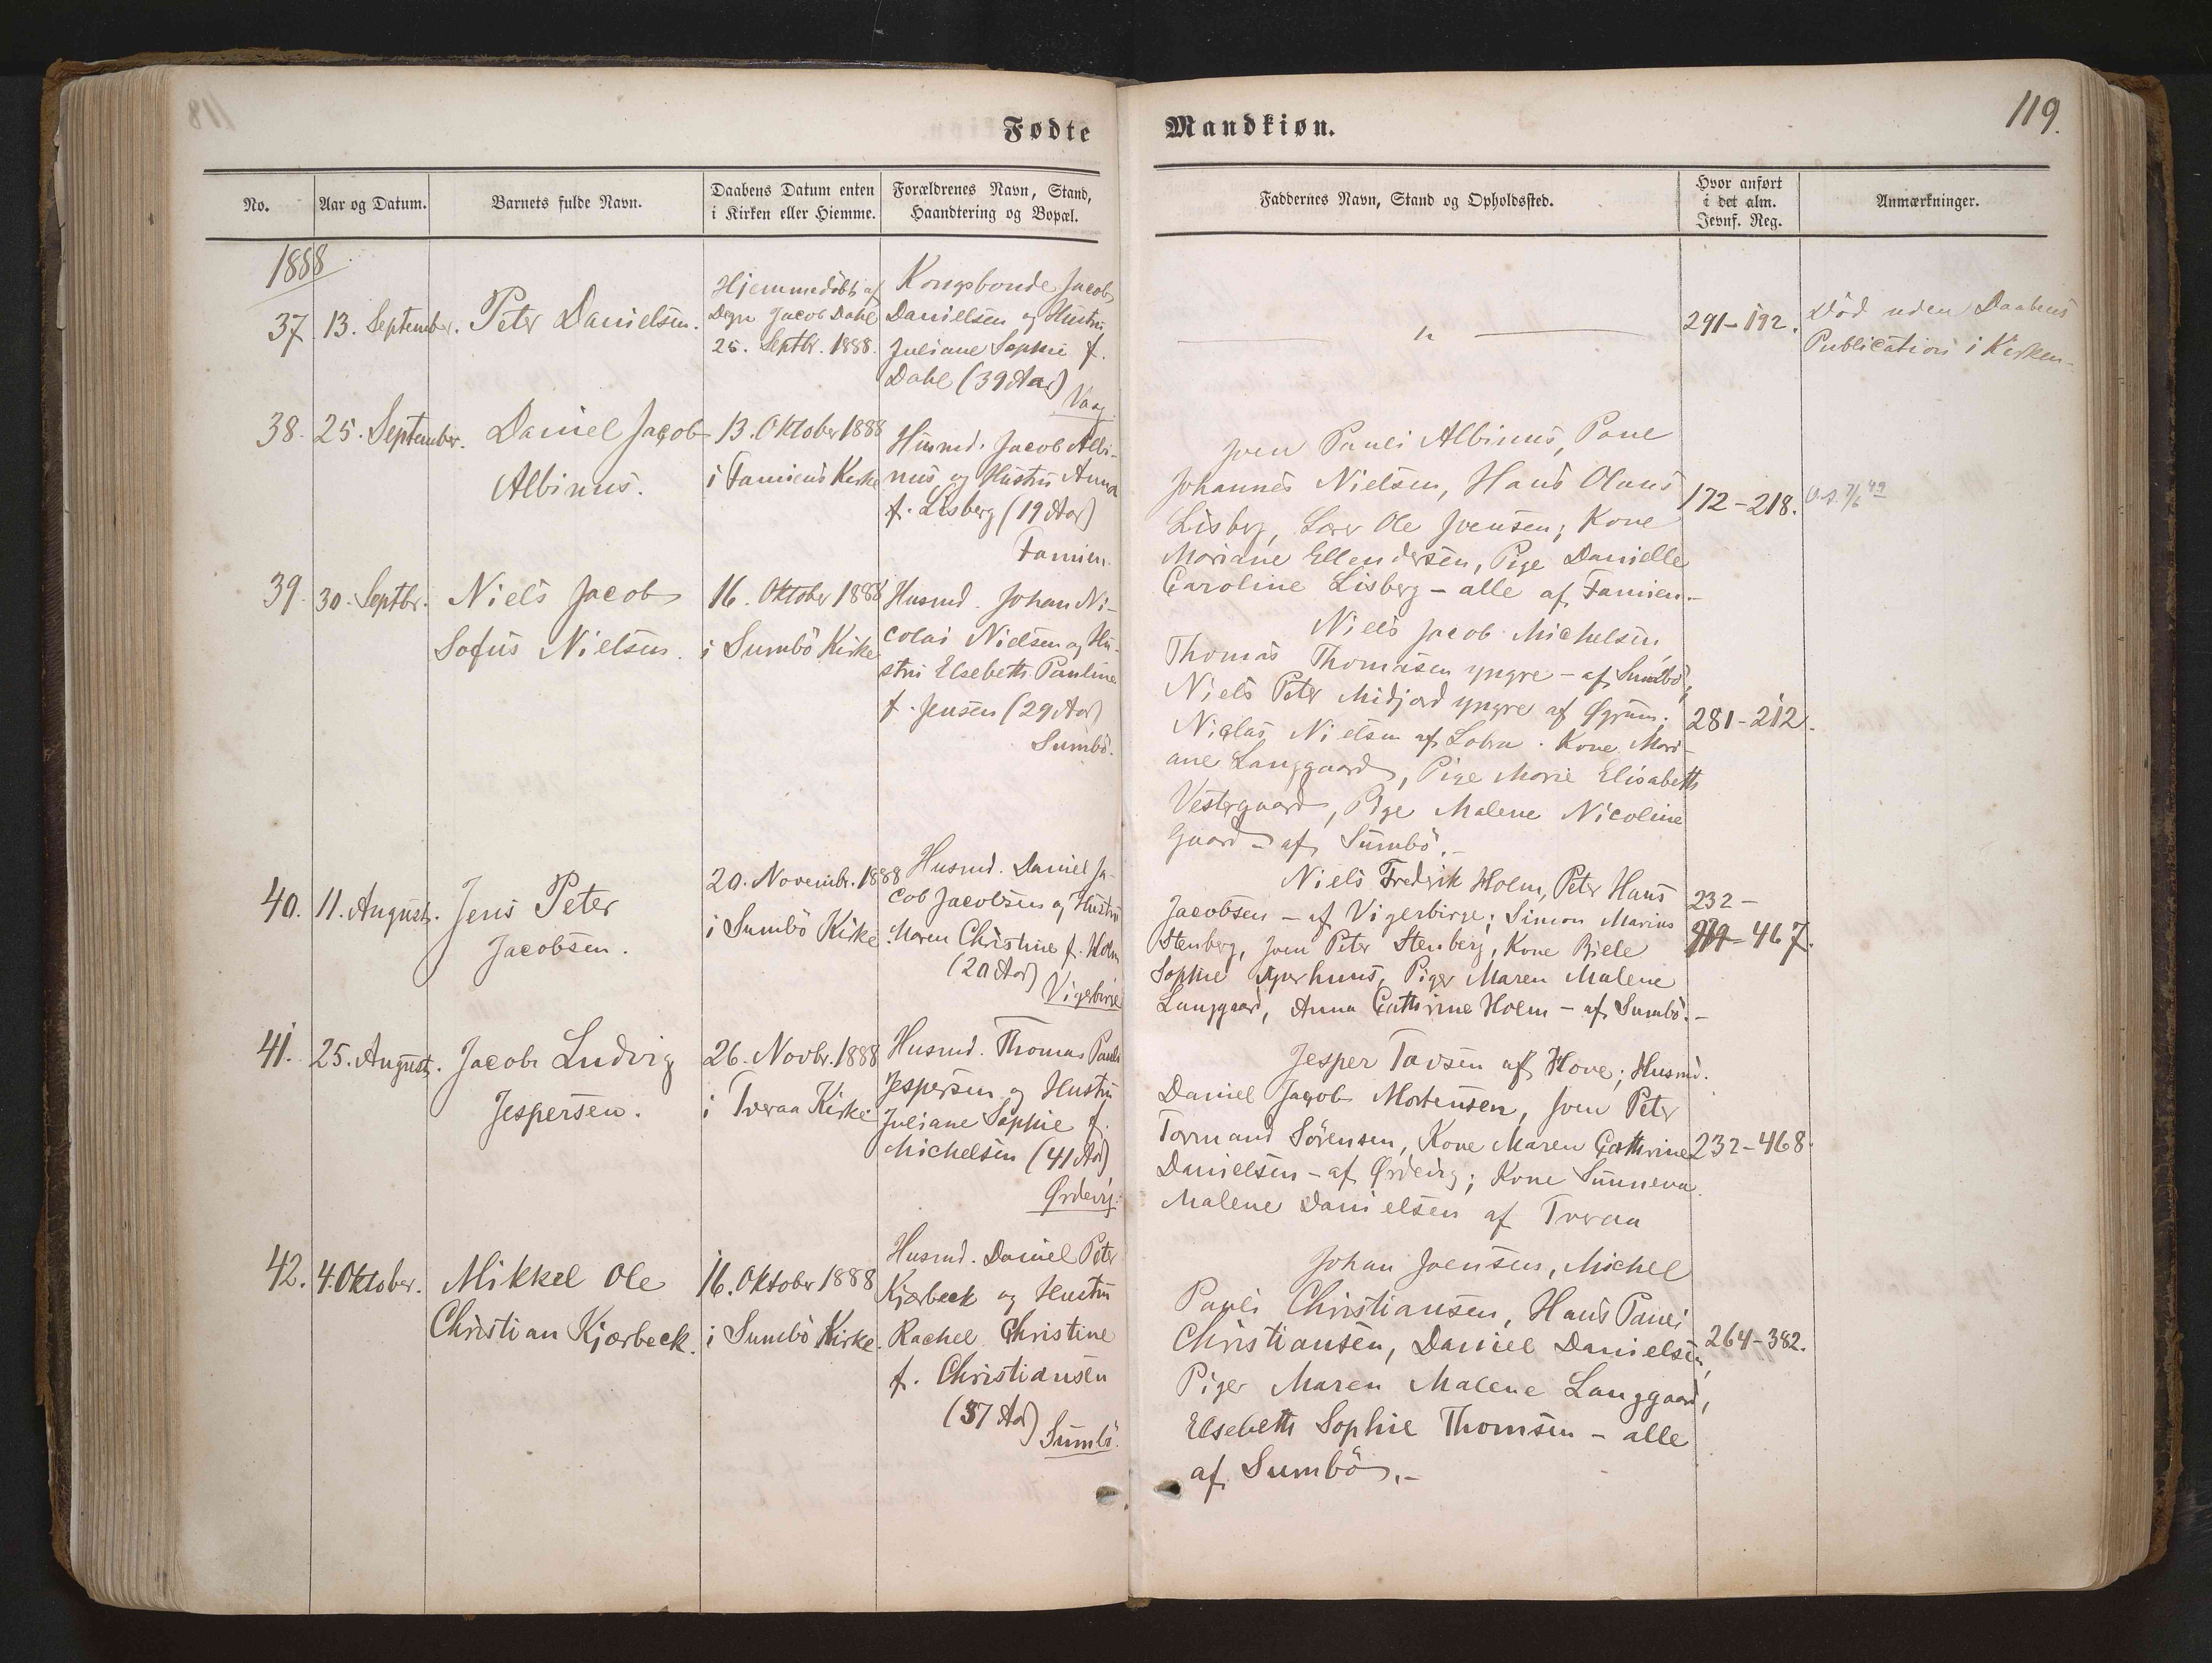 119.
Fødte Mandkiøn.
No.
Aar og Datum.
Barnets fulde Navn.
Daabens Datum enten
i Kirken eller Hiemme.
Forældrenes Navn, Stand,
Haandtering og Bopæl.
Faddernes Navn, Stand og Opholdssted.
Hvor anført
i det alm.
Jevnf. Reg.
Anmærkninger.
1888
37. 13. September. Peter Danielsen.
Hjemmedøbt af
Degn Jacob Dahl
25. Septbr. 1888.
Kongsbonde Jacob
Danielsen og Hustru
Juliane Sophie f.
Dahl (39 Aar)
Vaag.
"
291-192.
Død uden Daabens
Publication i Kirken.
38. 25. September. Daniel Jacob
Albinus.
13. Oktober 1888
i Famiens Kirke
Husmd. Jacob Albi-
nus og Hustru Anna
f. Lisberg (19 Aar)
Famien.
Joen Pauli Albinus, Poul
Johannes Nielsen, Hans Olaus
Lisberg, Lærer Ole Joensen; Kone
Mariane Ellendersen, Pige Danielle
Caroline Lisberg - alle af Famien.-
172-218.
39. 30. Septbr. Niels Jacob
Sofus Nielsen.
16. Oktober 1888
i Sumbö Kirke
Husmd. Johan Ni-
colai Nielsen og Hu-
stru Elsebeth Pauline
f. Jensen (29 Aar)
Sumbö.
Niels Jacob Michelsen,
Thomas Thomasen yngre - af Sumbö,
Niels Peter Midjord yngre af Øgrum;
Niclas Nielsen af Lobra. Kone Mari-
ane Langgaard, Pige Marie Elisabeth
Vestergaard, Pige Malene Nicoline
Gaard - af Sumbö.-
281-212.
40. 11. August. Jens Peter
Jacobsen.
20. Novembr. 1888
i Sumbö Kirke.
Husmd. Daniel Ja-
cob Jacobsen og Hustru
Maren Christine f. Holm
(20 Aar)
Vigerbirge
Niels Fredrik Holm, Peter Hans
Jacobsen - af Vigerbirge; Simon Marius
Stenberg, Joen Peter Stenberg, Kone Biele
Sophie Agerhuus, Piger Maren Malene
Langgaard, Anna Cathrine Holm - af Sumbö.-
232-
467.
41. 25. August. Jacob Ludvig
Jespersen.
26. Novbr. 1888
i Tveraa Kirke
Husmd. Thomas Pauli
Jespersen og Hustru
Juliane Sophie f.
Michelsen (41 Aar)
Ørdevig.
Jesper Tavsen af Hove; Husmd.
Daniel Jacob Mortensen, Joen Peter
Tormand Sörensen, Kone Maren Cathrine
Danielsen - af Ørdevig; Kone Sunneva
Malene Danielsen af Tveraa
232-468.
42. 4. Oktober. Mikkel Ole
Christian Kjærbeck.
16. Oktober 1888
i Sumbö Kirke.
Husmd. Daniel Peter
Kjærbeck og Hustru
Rachel Christine
f. Christiansen
(37 Aar)
Sumbö.
Johan Joensen, Michel
Pauli Christiansen, Hans Pauli
Christiansen, Daniel Danielsen,
Piger Maren Malene Langgaard,
Elsebeth Sophie Thomsen - alle
af Sumbö.-
264-382.